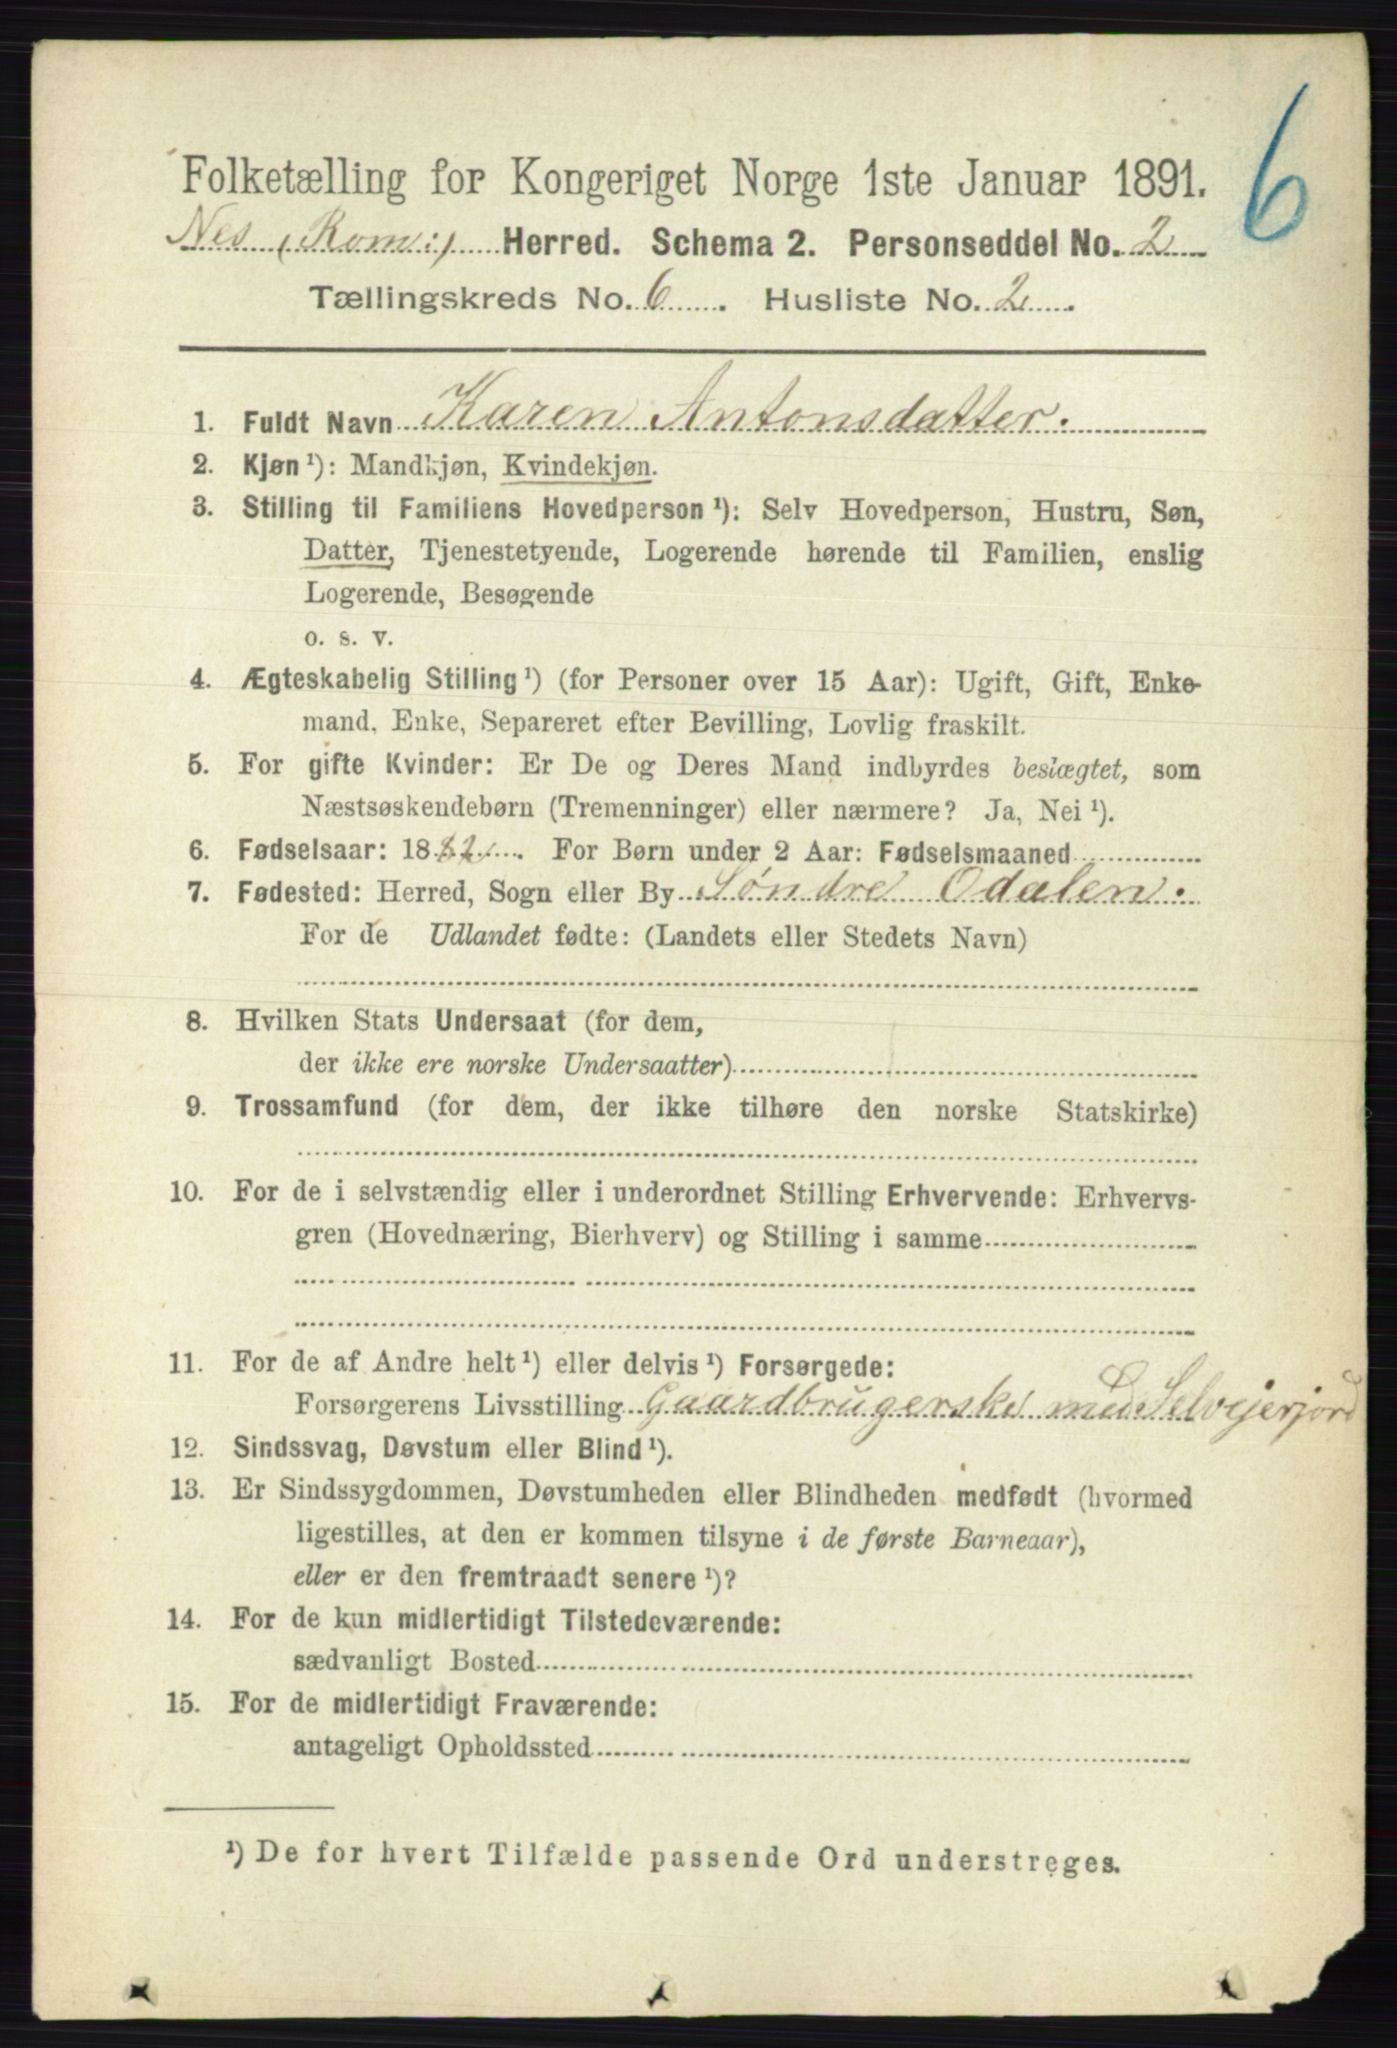 6
Folketælling for Kongeriget Norge 1ste Januar 1891.
Nes (Rom:) Herred. Schema 2. Personseddel No. 2
Tællingskreds No. 6. Husliste No. 2.
1. Fuldt Navn Karen Antonsdatter.
2. Kjøn ¹): Mandkjøn, Kvindekjøn.
3. Stilling til Familiens Hovedperson ¹): Selv Hovedperson, Hustru, Søn,
Datter, Tjenestetyende, Logerende hørende til Familien, enslig
Logerende, Besøgende
o. s. v.
4. Ægteskabelig Stilling ¹) (for Personer over 15 Aar): Ugift, Gift, Enke-
mand, Enke, Separeret efter Bevilling, Lovlig fraskilt.
5. For gifte Kvinder: Er De og Deres Mand indbyrdes beslægtet, som
Næstsøskendebørn (Tremenninger) eller nærmere? Ja, Nei ¹).
6. Fødselsaar: 1882. For Børn under 2 Aar: Fødselsmaaned
7. Fødested: Herred, Sogn eller By Søndre Odalen.
For de Udlandet fødte: (Landets eller Stedets Navn)
8. Hvilken Stats Undersaat (for dem,
der ikke ere norske Undersaatter)
9. Trossamfund (for dem, der ikke tilhøre den norske Statskirke)
10. For de i selvstændig eller i underordnet Stilling Erhvervende: Erhvervs-
gren (Hovednæring, Bierhverv) og Stilling i samme
11. For de af Andre helt ¹) eller delvis ¹) Forsørgede:
Forsørgerens Livsstilling Gaardbrugerske med Selvejerjord
12. Sindssvag, Døvstum eller Blind ¹).
13. Er Sindssygdommen, Døvstumheden eller Blindheden medfødt (hvormed
ligestilles, at den er kommen tilsyne i de første Barneaar),
eller er den fremtraadt senere ¹)?
14. For de kun midlertidigt Tilstedeværende:
sædvanligt Bosted
15. For de midlertidigt Fraværende:
antageligt Opholdssted
¹) De for hvert Tilfælde passende Ord understreges.